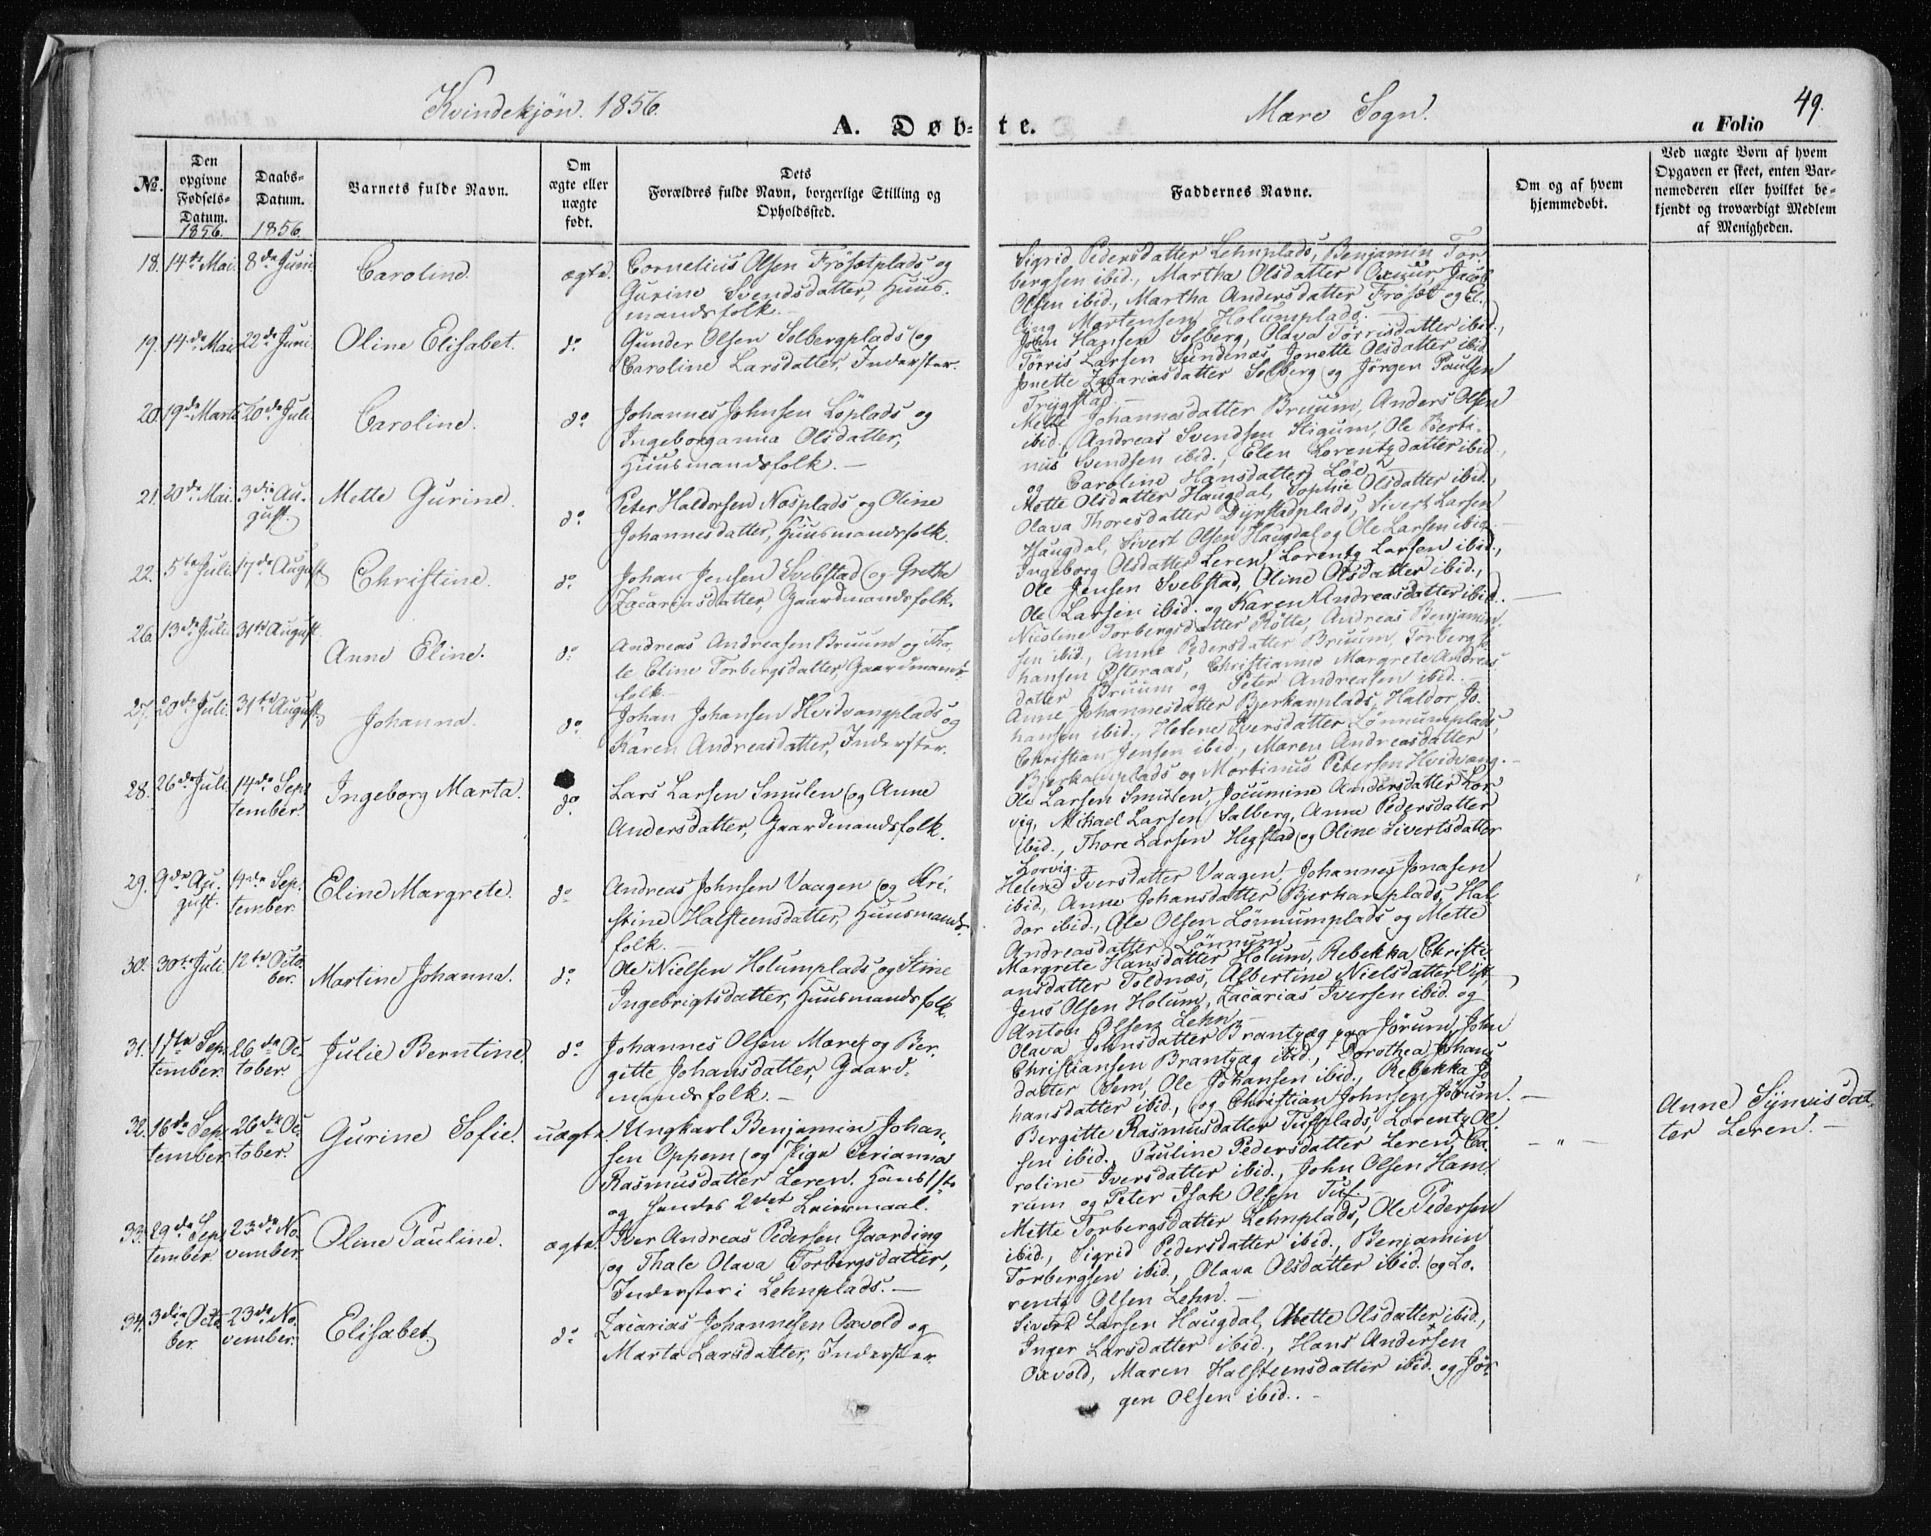 Kvindekjøn. 1856.
Mære Sogn.
49.
A. Døb-
te.
a Folio
No.
Den
opgivne
Fødsels-
Datum.
1856.
Daabs-
Datum.
1856.
Barnets fulde Navn.
Om
ægte eller
uægte
født.
Dets
Forældres fulde Navn, borgerlige Stilling og
Opholdssted.
Faddernes Navne.
Om og af hvem
hjemmedøbt.
Ved uægte Børn af hvem
Opgaven er skeet, enten Bar-
nemoderen eller hvilket be-
kjendt og troværdigt Medlem
af Menigheden.
18. 14de Mai. 8de Juni Caroline. ægte.
Cornelius Olsen Frösetplads og
Gurine Svendsdatter, Huus-
mandsfolk. —
Sigrid Pedersdatter Lehnplads, Benjamin Tor
bergsen ibid., Martha Olsdatter Jacob
Olsen ibid., Martha Andersdatter Fröset og El-
ling Mortensen Holumplads. —
19. 14de Mai 22de Juni. Oline Elisabet. do
Gunder Olsen Solbergplads og
Caroline Larsdatter, Inderster.
John Hansen Solberg, Olava Tørrisdatter ibid.,
Tørris Larsen Sundenæs, Jonette Olsdatter ibid
Jonette Zakariasdatter Solberg og Jørgen Paulsen
Trygstad. —
20. 19de Marts 20de Juli. Caroline. do
Johannes Johnsen Löplads og
Ingeborganna Olsdatter,
Huusmandsfolk. —
Mette Johannesdatter Bruum, Anders Olsen
ibid. Andreas Svendsen Stigum, Ole Berti-
nus Svendsen ibid., Elen Lorentzdatter ibid.,
og Caroline Hansdatter Löe.
21. 20de Mai. 3die Au-
gust. Mette Gurine. do
Peter Haldorsen Næsplads og Oline
Johannesdatter, Huusmandsfolk.
Mette Olsdatter Haugdal, Sophie Olsdatter ibid.,
Olava Thoresdatter Dyrstadplads, Sivert Larsen
Haugdal, Sivert Olsen Haugdal og Ole Larsen ibid.
22. 5te Juli 17de August Christine. do
Johan Jensen Svebstad og Grethe
Zacariasdatter, Gaardmandsfolk.
Ingeborg Olsdatter Leren, Lorentz Larsen ibid.,
Ole Jensen Svebstad, Oline Olsdatter ibid.,
Ole Larsen ibid. og Karen Andreasdatter ibid. —
26. 13de Juli. 31te August. Anne Eline. do
Andreas Andreasen Bruum og Tho-
le Eline Torbergsdatter, Gaardmands-
folk. —
Nicoline Torbergsdatter Rölte, Andreas Benjamin-
sen ibid., Anne Pedersdatter Bruum, Torberg Jo-
hansen Østeraas, Christianne Margrete Andreas
datter Bruum og Peter Andreasen ibid. —
27. 20de Juli. 31te August. Johanna. do
Johan Johansen Hvidvangplads og
Karen Andreasdatter, Inderster.
Anne Johannesdatter Bjerkanplads, Haldor Jo-
hansen ibid., Helene Iversdatter Lönnumplads,
Christian Jensen ibid., Maren Andreasdatter
Bjerkanplads og Mortinus Petersen Hvidvang. —
28. 26de Juli. 14de Sep-
tember. Ingeborg Marta. do
Lars Larsen Smulen og Anne
Andersdatter, Gaardmandsfolk.
Ole Larsen Smulen, Jocumine Andersdatter Lor-
vig, Mikael Larsen Salberg, Anne Pedersdatter
ibid., Thore Larsen Hegstad og Oline Sivertsdatter
Lorvig. —
29. 9de Au-
gust. 14de Sep-
tember. Eline Margrete. do
Andreas Johnsen Vaagen og Kri-
stine Halsteensdatter, Huusmands-
folk. —
Helene Iversdatter Vaagen, Johannes Jonasen
ibid., Anne Johansdatter Bjerkanplads, Hal-
dor ibid., Ole Olsen Lönnumplads og Mette
Andreasdatter Lönnum. —
30. 30te Juli 12te Octo-
ber. Martine Johanna. do
Ole Nielsen Holumplads og Stine
Ingebrigtsdatter, Huusmandsfolk.
Margrete Hansdatter Holum, Rebekka Christi-
ansdatter Toldnæs, Albertine Nielsdatter
Jens Olsen Holum, Zacarias Iversen ibid. og
Anton Olsen Lehn. —
31. 17te Sep-
tember. 26de Oc-
tober. Julie Berntine. do
Johannes Olsen Mære og Ber-
gitte Johansdatter, Gaard-
mandsfolk. —
Olava Johnsdatter Brantzæg paa Jörum, John
Christiansen Brantzæg ibid., Dorothea Johans
datter Sem, Ole Johansen ibid., Rebekka Jo-
hansdatter ibid., og Christian Johnsen Jörum. —
32. 16de Sep-
tember 26de Oc-
tober. Gurine Sofie. uægte.
Ungkarl Benjamin Johan-
sen Oppem og Pige Serianna
Rasmusdatter Leren. Hans 1ste
og hendes 2det Leiermaal.
Bergitte Rasmusdatter Tufplads, Lorentz Ol-
sen ibid., Pauline Pedersdatter Leren, Ca-
roline Iversdatter ibid., John Olsen Ham
rum og Peter Isak Olsen Tuf.
— „ —
Anne Synvisdat-
ter Leren. —
33. 29de Sep-
tember 23de No-
vember. Oline Pauline. ægte.
Iver Andreas Pedersen Gaarding
og Thale Olava Torbergsdatter,
Inderster i Lehnplads. —
Mette Torbergsdatter Lehnplads, Ole Pedersen
ibid., Sigrid Pedersdatter ibid., Benjamin
Torbergsen ibid., Olava Olsdatter ibid. og Lo-
rents Olsen Lehn. —
34. 3die Octo-
ber. 23de No-
vember. Elisabet. do
Zacarias Johannesen Oxvold og
Marta Larsdatter, Inderster.
Sivert Larsen Haugdal, Mette Olsdatter ibid.,
Inger Larsdatter ibid., Hans Andersen
Oxvold, Maren Halsteensdatter ibid. og Jör-
gen Olsen ibid. —